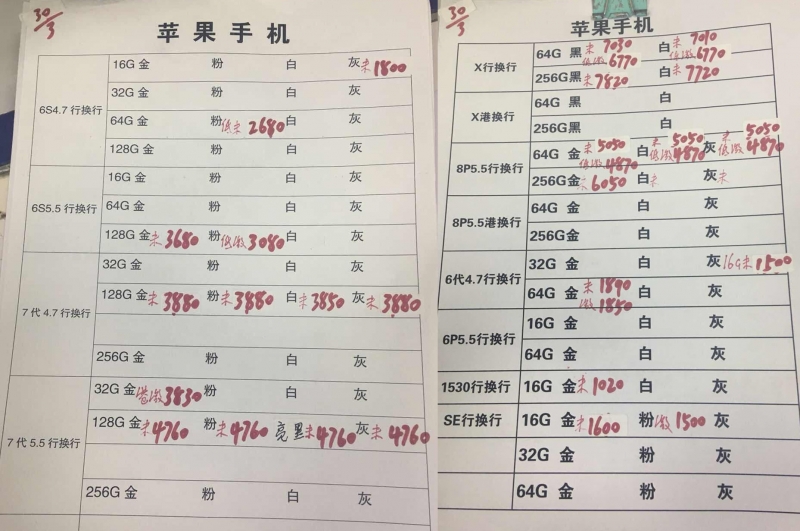 30/3
苹果手机
6S4.7行换行
16G 金 粉 白 灰 未1800
32G 金 粉 白 灰
64G 金 粉 低未2680 白 灰
128G 金 粉 白 灰
6S5.5行换行
16G 金 粉 白 灰
64G 金 粉 白 灰
128G 金 未3680 粉 低激3080 白 灰
7代4.7行换行
32G 金 粉 白 灰
128G 金 未3880 粉 未3880 白 未3850 灰 未3880
256G 金 粉 白 灰
7代5.5行换行
32G 金 激3830 粉 白 灰
128G 金 未4760 粉 未4760 亮黑 未4760 灰 未4760
256G 金 粉 白 灰
30/3
苹果手机
X行换行
64G 黑 未7030 低激6770 白 未7010 低激6770
256G 黑 未7820 白 未7720
X港换行
64G 黑 白
256G 黑 白
8P5.5行换行
64G 金 未5050 低激4870 白 未5050 低激4870 灰 未5050 低激4870
256G 金 未6050 白 未 灰 未
8P5.5港换行
64G 金 白 灰
256G 金 白 灰
6代4.7行换行
32G 金 白 灰 16G未1500
64G 金 未1890 激1850 白 灰
6P5.5行换行
16G 金 白 灰
64G 金 白 灰
1530行换行
16G 金 未1020 白 灰
SE行换行
16G 金 未1600 粉 激1500 灰
32G 金 粉 灰
64G 金 粉 灰